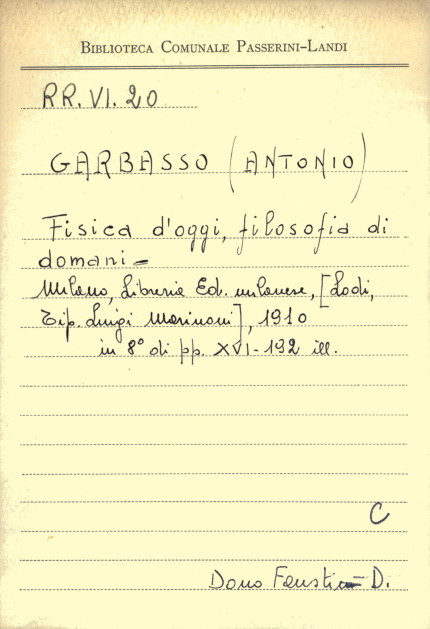 BIBLIOTECA COMUNALE PASSERINI-LANDI
RR. VI. 20
GARBASSO (ANTONIO)
Fisica d'oggi, filosofia di
domani-
Milano, Libreria Ed. milanese, [Lodi,
Tip. Luigi Marinoni], 1910
in 8° di pp. XVI-192 ill.
C
Dono D.